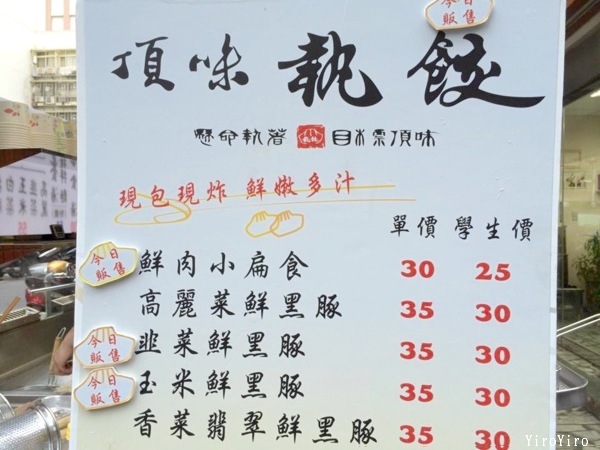 今日
販售
頂味執餃
懸命執著 執餃 目標頂味
現包現炸 鮮嫩多汁
單價 學生價
今日
販售
鮮肉小扁食 30 25
高麗菜鮮黑豚 35 30
今日
販售
韭菜鮮黑豚 35 30
今日
販售
玉米鮮黑豚 35 30
香菜翡翠鮮黑豚 35 30
YiroYiro